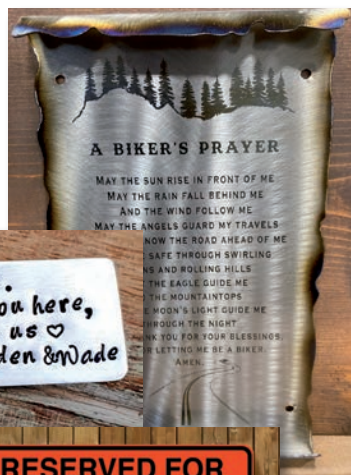 A BIKER'S PRAYER
MAY THE SUN RISE IN FRONT OF ME
MAY THE RAIN FALL BEHIND ME
AND THE WIND FOLLOW ME
MAY THE ANGELS GUARD MY TRAVELS
NOW THE ROAD AHEAD OF ME
SAFE THROUGH SWIRLING
NS AND ROLLING HILLS
THE EAGLE GUIDE ME
THE MOUNTAINTOPS
E MOON'S LIGHT GUIDE ME
HROUGH THE NIGHT
NK YOU FOR YOUR BLESSINGS
R LETTING ME BE A BIKER.
AMEN.
ou here,
us ♡
den & Wade
RESERVED FOR